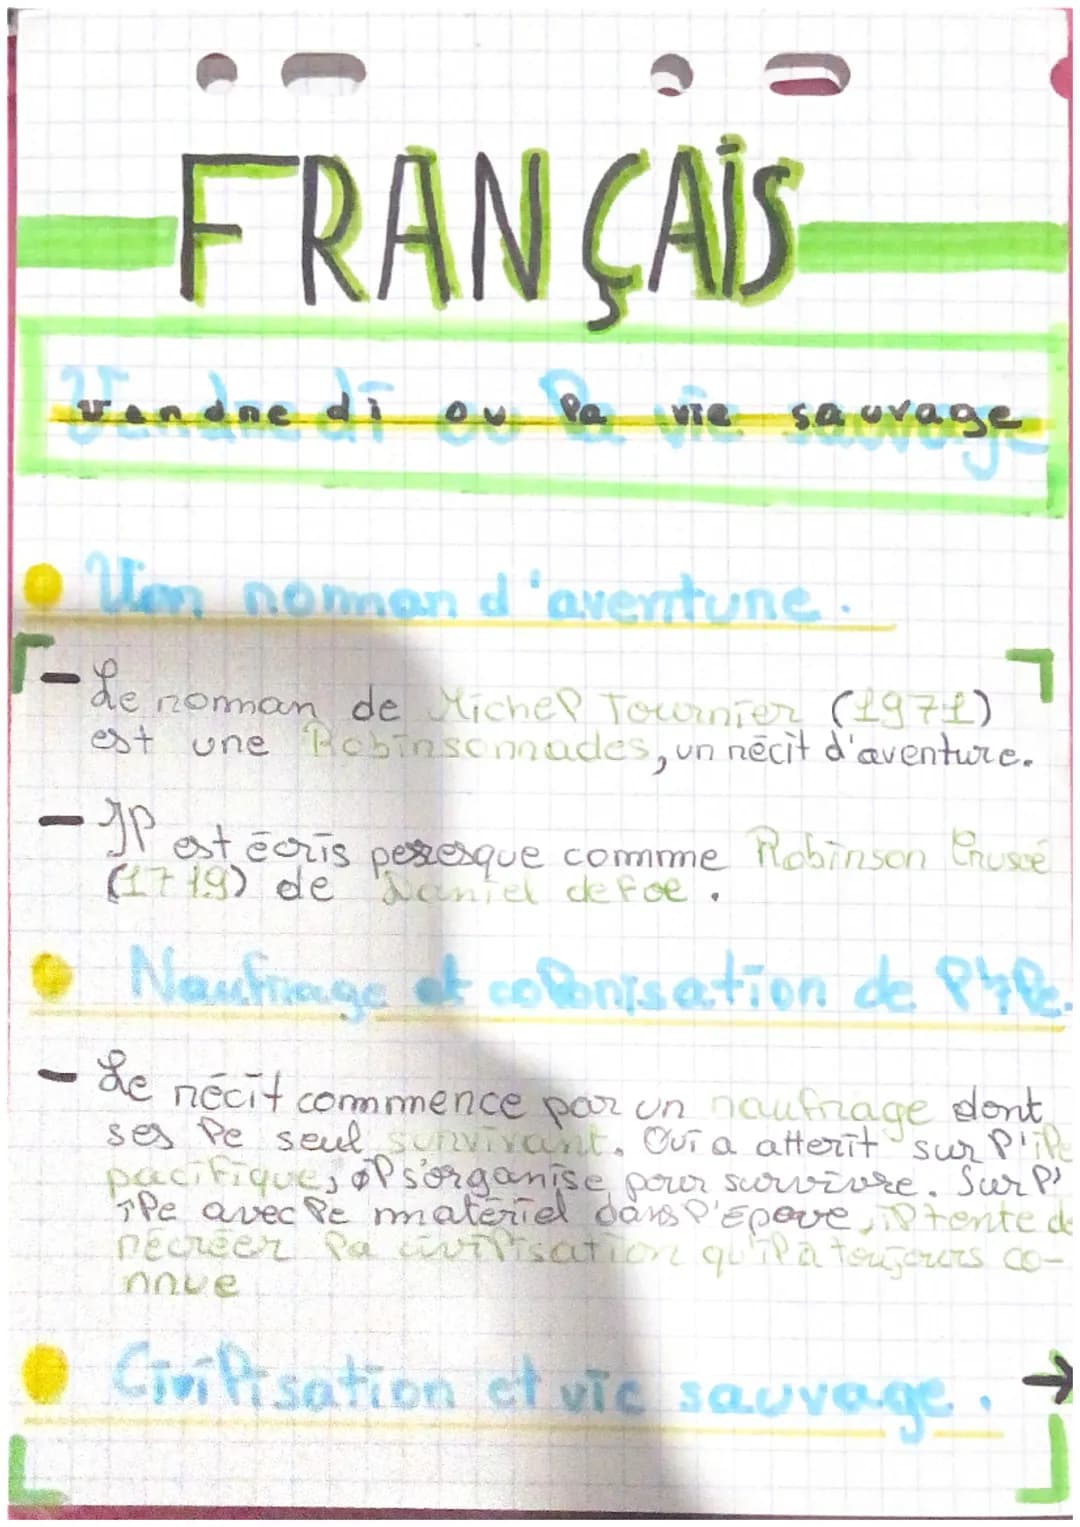 FRANÇAIS
Vendredi ou la vie sauvage
Un roman d'aventure.
- Le roman de Michel Tournier (1971)
est une Robinsonnades, un récit d'aventure.
- Il est écris presque comme Robinson Crusoé
(1719) de Daniel defoe.
Naufrage et colonisation de l'île.
- Le récit commence par un naufrage dont
ses le seul survivant. Qui a atterit sur l'île
pacifique, il s'organise pour survivre. Sur l'
île avec le matériel dans l'Epave, il tente de
recréer la civilisation qu'il a toujours co-
nnue
Civilisation et vie sauvage. →